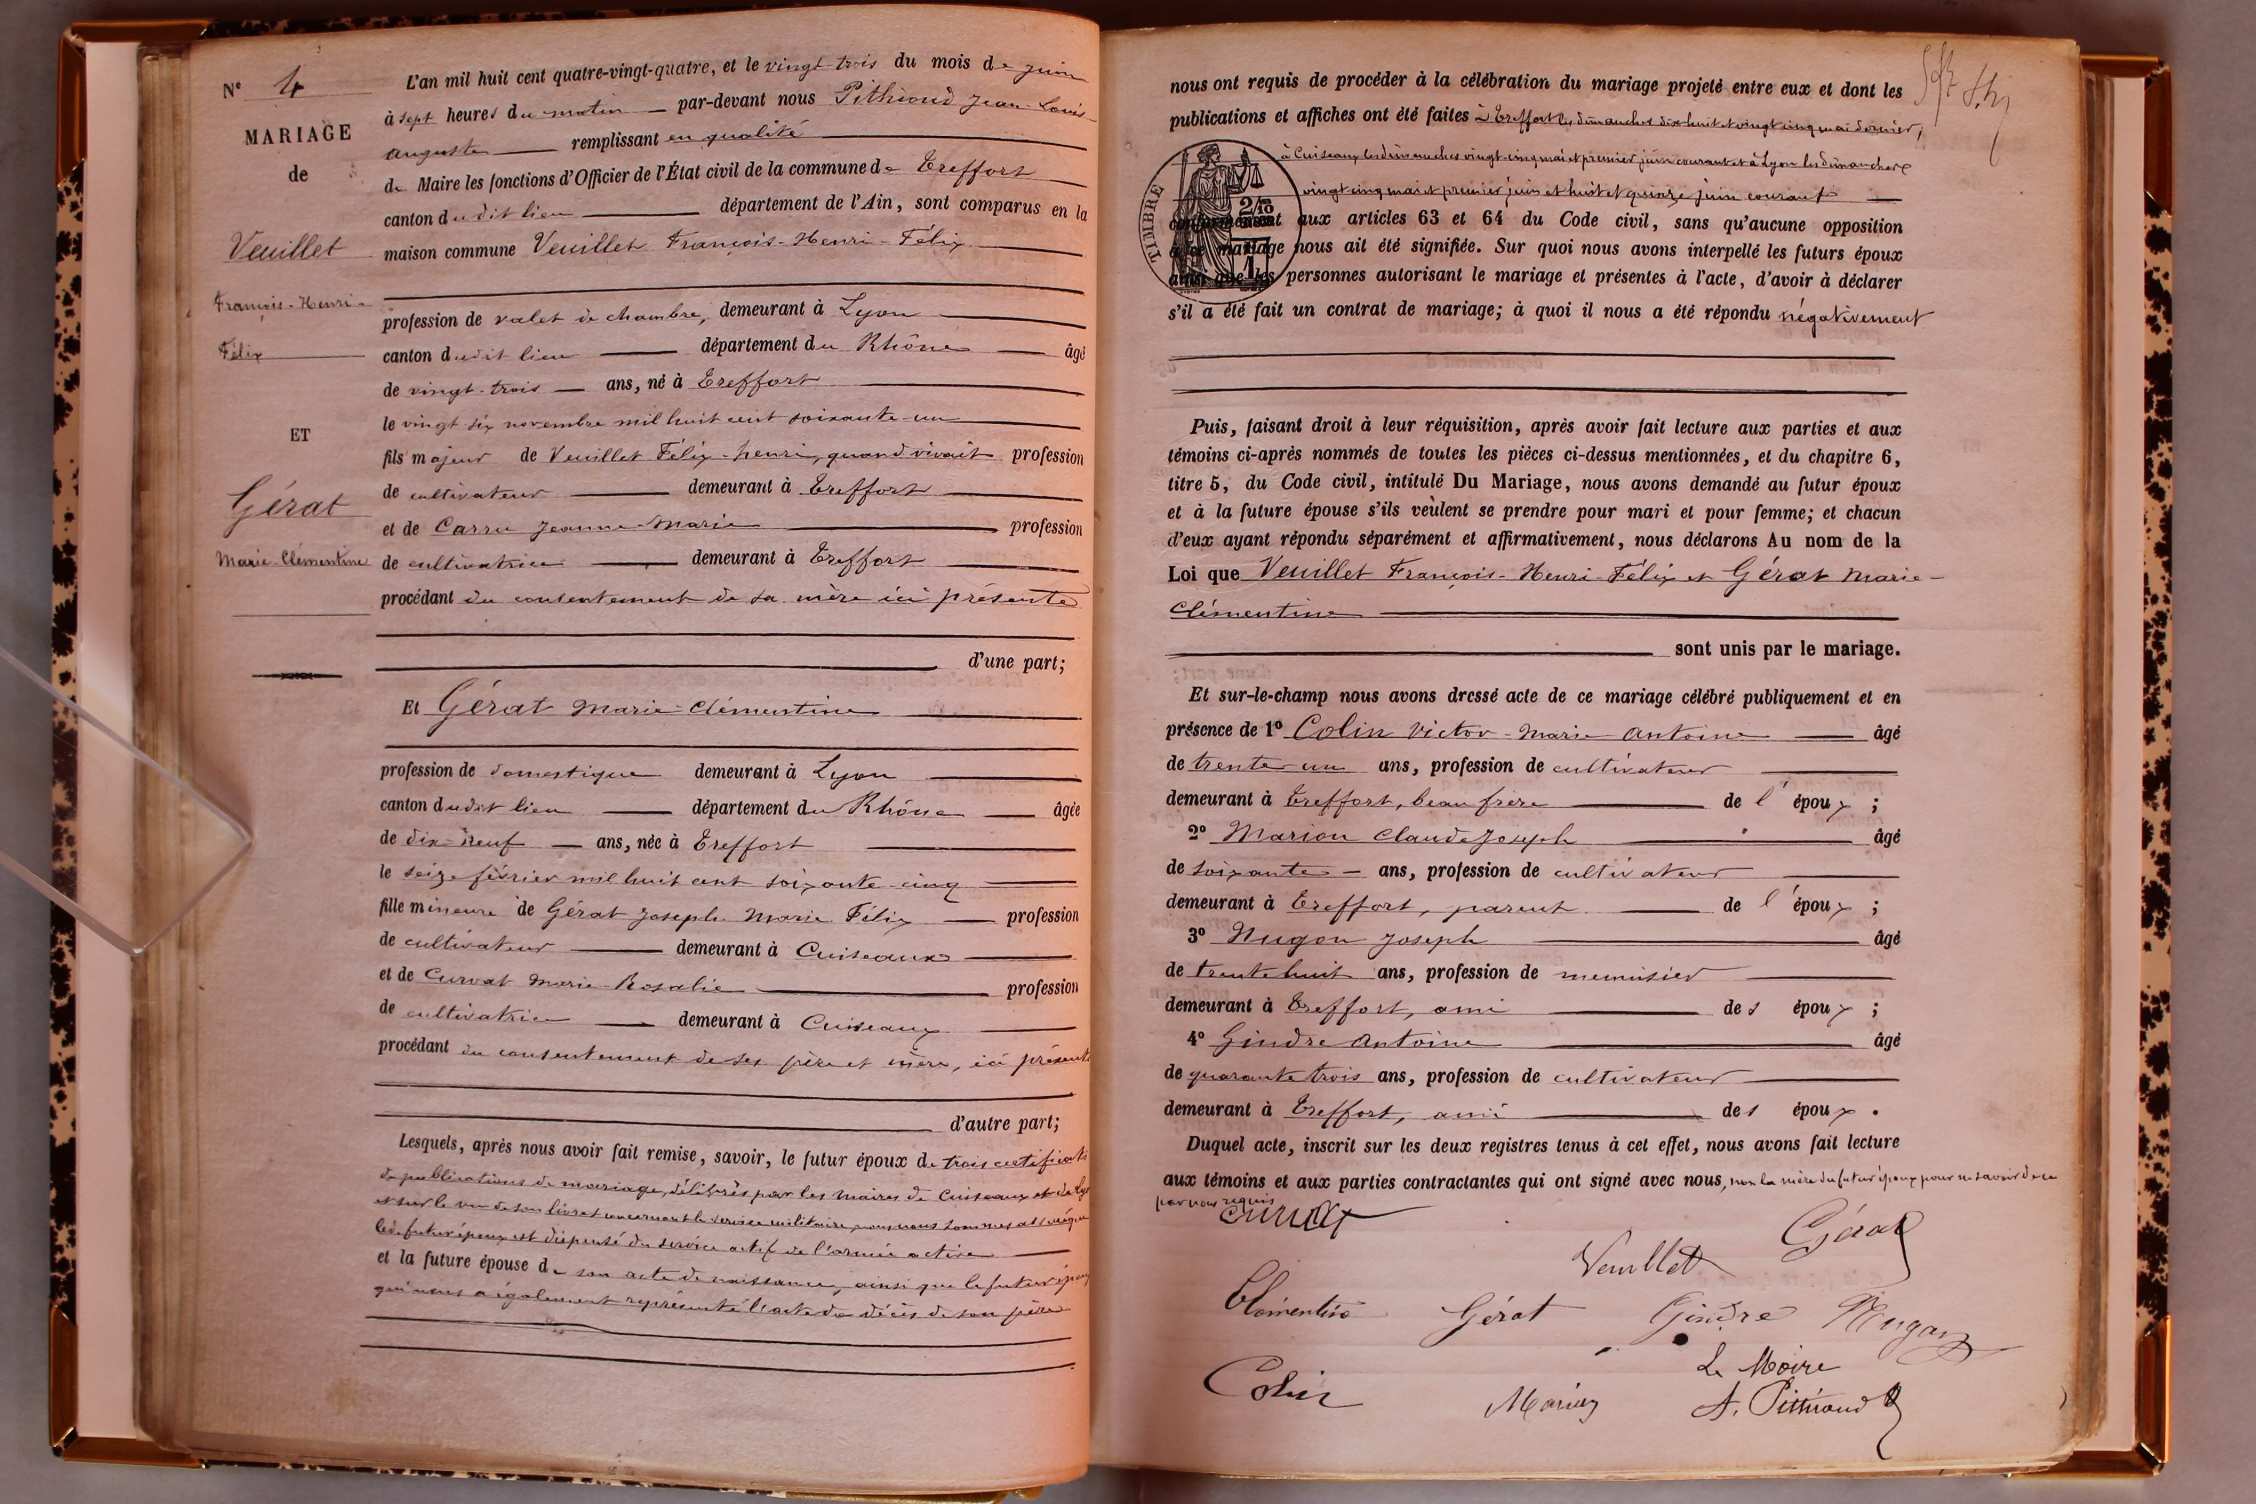 N° 4
MARIAGE
de
Veuillet
François-Henri-
Félix
ET
Gérat
Marie-Clémentine
L'an mil huit cent quatre-vingt-quatre, et le vingt-trois du mois de juin
à sept heures du matin par-devant nous Pithioud Jean-Louis-
auguste remplissant en qualité
de Maire les fonctions d'Officier de l'État civil de la commune de Treffort
canton dudit lieu département de l'Ain, sont comparus en la
maison commune Veuillet François-Henri-Félix
profession de valet de chambre, demeurant à Lyon
canton dudit lieu département du Rhône âgé
de vingt-trois ans, né à Treffort
le vingt six novembre mil huit cent soixante-un
fils majeur de Veuillet Félix-henri, quand vivait profession
de cultivateur demeurant à Treffort
et de Carru Jeanne-Marie profession
de cultivatrice demeurant à Treffort
procédant du consentement de sa mère ici présente
d'une part;
Et Gérat Marie-Clémentine
profession de domestique demeurant à Lyon
canton dudit lieu département du Rhône âgée
de dix-neuf ans, née à Treffort
le seize février mil huit cent soixante-cinq
fille mineure de Gérat Joseph Marie Félix profession
de cultivateur demeurant à Cuiseaux
et de Curvat Marie-Rosalie profession
de cultivatrice demeurant à Cuiseaux
procédant du consentement de ses père et mère, ici présents
d'autre part;
Lesquels, après nous avoir fait remise, savoir, le futur époux de trois certificats
de publications de mariage, délivrés par les maires de Cuiseaux et de Lyon
et sur le vu de son livret concernant le service militaire, nous nous sommes assuré que
led. futur époux est dispensé du service actif de l'armée active
et la future épouse de son acte de naissance, ainsi que le futur époux
qui nous a également représenté l'acte de décès de son père
nous ont requis de procéder à la célébration du mariage projeté entre eux et dont les
publications et affiches ont été faites à Treffort les dimanches dix huit et vingt cinq mai dernier,
à Cuiseaux les dimanches vingt-cinq mai et premier juin courant et à Lyon les dimanches
vingt cinq mai et premier juin et huit et quinze juin courant
TIMBRE
conformément aux articles 63 et 64 du Code civil, sans qu'aucune opposition
à ce mariage nous ait été signifiée. Sur quoi nous avons interpellé les futurs époux
ainsi que les personnes autorisant le mariage et présentes à l'acte, d'avoir à déclarer
s'il a été fait un contrat de mariage; à quoi il nous a été répondu négativement
Puis, faisant droit à leur réquisition, après avoir fait lecture aux parties et aux
témoins ci-après nommés de toutes les pièces ci-dessus mentionnées, et du chapitre 6,
titre 5, du Code civil, intitulé Du Mariage, nous avons demandé au futur époux
et à la future épouse s'ils veulent se prendre pour mari et pour femme; et chacun
d'eux ayant répondu séparément et affirmativement, nous déclarons Au nom de la
Loi que Veuillet François-Henri-Félix et Gérat Marie-
Clémentine
sont unis par le mariage.
Et sur-le-champ nous avons dressé acte de ce mariage célébré publiquement et en
présence de 1° Colin Victor-Marie Antoine âgé
de trente un ans, profession de cultivateur
demeurant à Treffort, beau frère de l'époux;
2° Marion Claude Joseph âgé
de soixante ans, profession de cultivateur
demeurant à Treffort, parent de l'époux;
3° Nugon Joseph âgé
de trente huit ans, profession de menuisier
demeurant à Treffort, ami des époux;
4° Gindre Antoine âgé
de quarante trois ans, profession de cultivateur
demeurant à Treffort, ami des époux.
Duquel acte, inscrit sur les deux registres tenus à cet effet, nous avons fait lecture
aux témoins et aux parties contractantes qui ont signé avec nous, non la mère du futur époux pour ne savoir de ce
par nous requis
Curvat
Veuillet
Gérat
Clémentine
Gérat
Gindre
Nugon
Colin
Marion
Le Maire
A. Pithioud